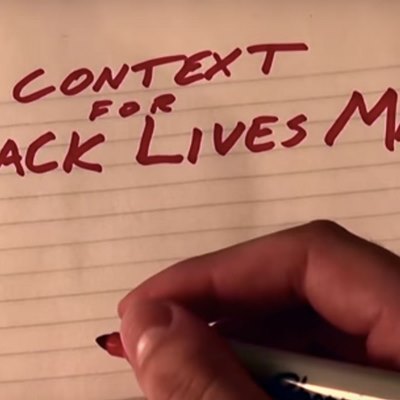 CONTEXT
FOR
ACK LIVES MA